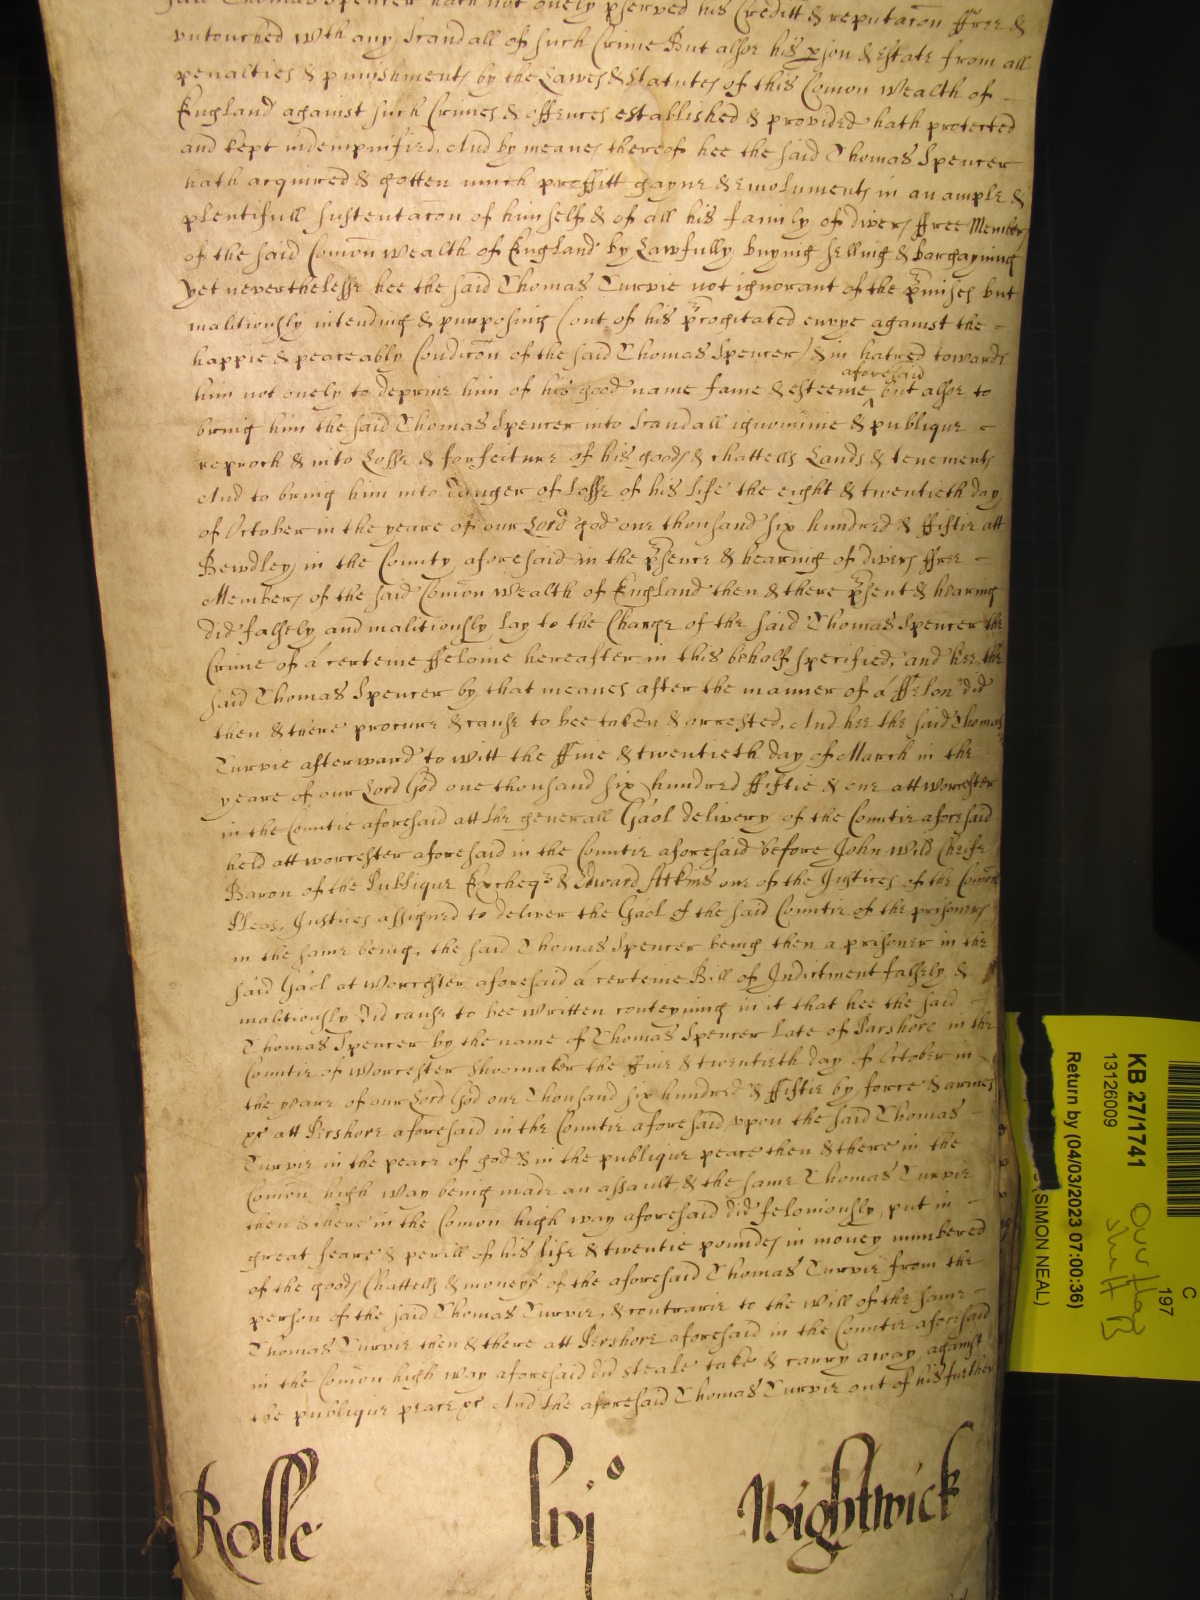 said Thomas Spencer hath not onely pserved his Creditt & reputacon ffree &
untouched wth any Scandall of such Crime But alsoe his pson & estate from all
penalties & punishments by the Lawes & Statutes of this Comon Wealth of
England against such Crimes & offences established & provided hath protected
and kept indempnified. And by meanes thereof hee the said Thomas Spencer
hath acquired & gotten much proffitt gayne & emoluments in an ample &
plentifull sustentacon of himself & of all his family of divers ffree Members
of the said Comon wealth of England by Lawfully buying selling & bargayning
yet neverthelesse hee the said Thomas Turvie not ignorant of the pmisses but
malitiously intending & purposing (out of his pcogitated envye against the
happie & peaceably Condicon of the said Thomas Spencer) & in hatred towards
him not onely to deprive him of his good name fame & esteeme aforesaid but alsoe to
bring him the said Thomas Spencer into Scandall ignominie & publique
reproch & into Losse & forfeiture of his goods & chattells Lands & tenements
And to bring him into Danger of Losse of his Life the eight & twentieth day
of October in the yeare of our Lord god one thousand six hundred & ffiftie att
Bewdley in the County aforesaid in the psence & hearing of divers ffree
Members of the said Comon Wealth of England then & there psent & hearing
did falsely and malitiously Lay to the Charge of the said Thomas Spencer the
Crime of a certeine ffelonie hereafter in this behalf specified, and hee the
said Thomas Spencer by that meanes after the manner of a ffelon did
then & there procure & cause to bee taken & arrested. And hee the said Thomas
Turvie afterward to witt the ffive & twentieth day of March in the
yeare of our Lord God one thousand six hundred ffiftie & one att Worcester
in the Countie aforesaid att the generall Gaol delivery of the Countie aforesaid
held att worcester aforesaid in the Countie aforesaid before John Wild Cheife
Baron of the Publique Excheqr & Edward Atkins one of the Justices of the Comon
Pleas, Justices assigned to deliver the Gaol of the said Countie of the prisoners
in the same being, the said Thomas Spencer being then a prisoner in the
said Gaol at Worcester aforesaid a certeine Bill of Indictment falsely &
malitiously did cause to bee written conteyning in it that hee the said
Thomas Spencer by the name of Thomas Spencer Late of Parshore in the
Countie of Worcester Shoemaker the ffive & twentieth day of October in
the yeare of our Lord God one Thousand six hundred & ffiftie by force & armes
&c att Pershore aforesaid in the Countie aforesaid upon the said Thomas
Turvie in the peace of god & in the publique peace then & there in the
Comon high way being made an assault & the same Thomas Turvie
then & there in the Comon high way aforesaid did feloniously put in
great feare & perill of his life & twentie pounds in money numbered
of the goods Chattells & moneys of the aforesaid Thomas Turvie from the
person of the said Thomas Turvie, & contrarie to the will of the same
Thomas Turvie then & there att Pershore aforesaid in the Countie aforesaid
in the Comon high way aforesaid did steale take & carry away against
the publique peace &c And the aforesaid Thomas Turvie out of his further
Rolle lvjo Wightwick
C
197
KB 27/1741
13126009
Return by (04/03/2023 07:00:36)
(SIMON NEAL)